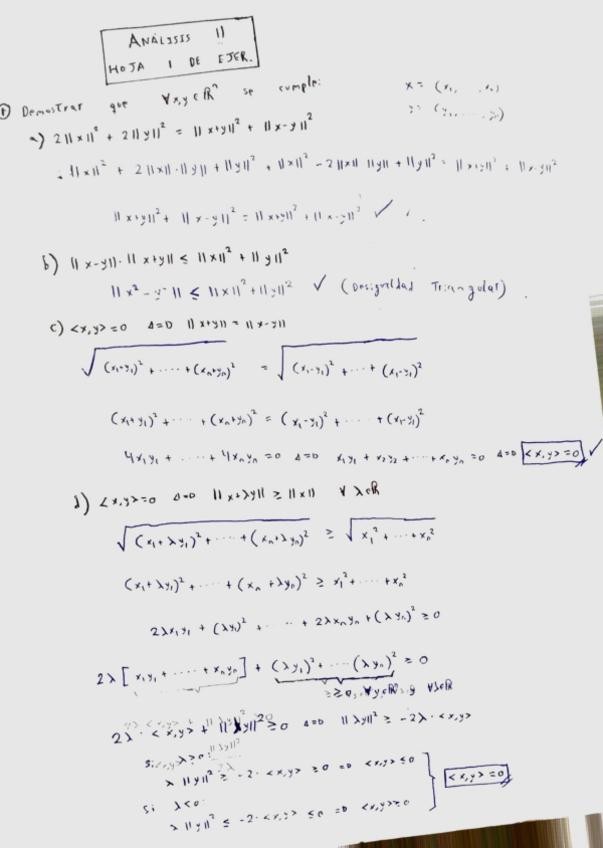 ANÁLISIS II
HOJA 1 DE EJER.
① Demostrar que ∀x,y∈ℝⁿ se cumple:
x = (x₁, ...xₙ)
y = (y₁, ......yₙ)
a) 2||x||² + 2||y||² = ||x+y||² + ||x-y||²
||x||² + 2||x||·||y|| + ||y||² + ||x||² - 2||x|| ||y|| + ||y||² = ||x+y||² + ||x-y||²
||x+y||² + ||x-y||² = ||x+y||² + ||x-y||² ✓
b) ||x-y||·||x+y|| ≤ ||x||² + ||y||²
||x²-y²|| ≤ ||x||² + ||y||² ✓ (Desigualdad Triangular).
c) <x,y>=0 ⇔ ||x+y|| = ||x-y||
√((x₁+y₁)² + ..... + (xₙ+yₙ)²) = √((x₁-y₁)² + .... + (x₁-y₁)²)
(x₁+y₁)² + ..... + (xₙ+yₙ)² = (x₁-y₁)² + .... + (x₁-y₁)²
4x₁y₁ + ..... + 4xₙyₙ = 0 ⇔ x₁y₁ + x₂y₂ + .... + xₙyₙ = 0 ⇔ <x,y>=0 ✓
d) <x,y>=0 ⇔ ||x+λy|| ≥ ||x|| ∀ λ∈ℝ
√((x₁+λy₁)² + ..... + (xₙ+λyₙ)²) ≥ √(x₁² + .... + xₙ²)
(x₁+λy₁)² + ..... + (xₙ+λyₙ)² ≥ x₁² + .... + xₙ²
2λx₁y₁ + (λy₁)² + ..... + 2λxₙyₙ + (λyₙ)² ≥ 0
2λ[x₁y₁ + ..... + xₙyₙ] + (λy₁)² + .... (λyₙ)² ≥ 0
2λ·<x,y> + ||λy||² ≥ 0 ⇔ ||λy||² ≥ -2λ·<x,y>
si λ>0:
λ||y||² ≥ -2·<x,y> ≥ 0 ⇒ <x,y> ≤ 0
si λ<0:
λ||y||² ≤ -2·<x,y> ≤ 0 ⇒ <x,y> ≥ 0
<x,y>=0